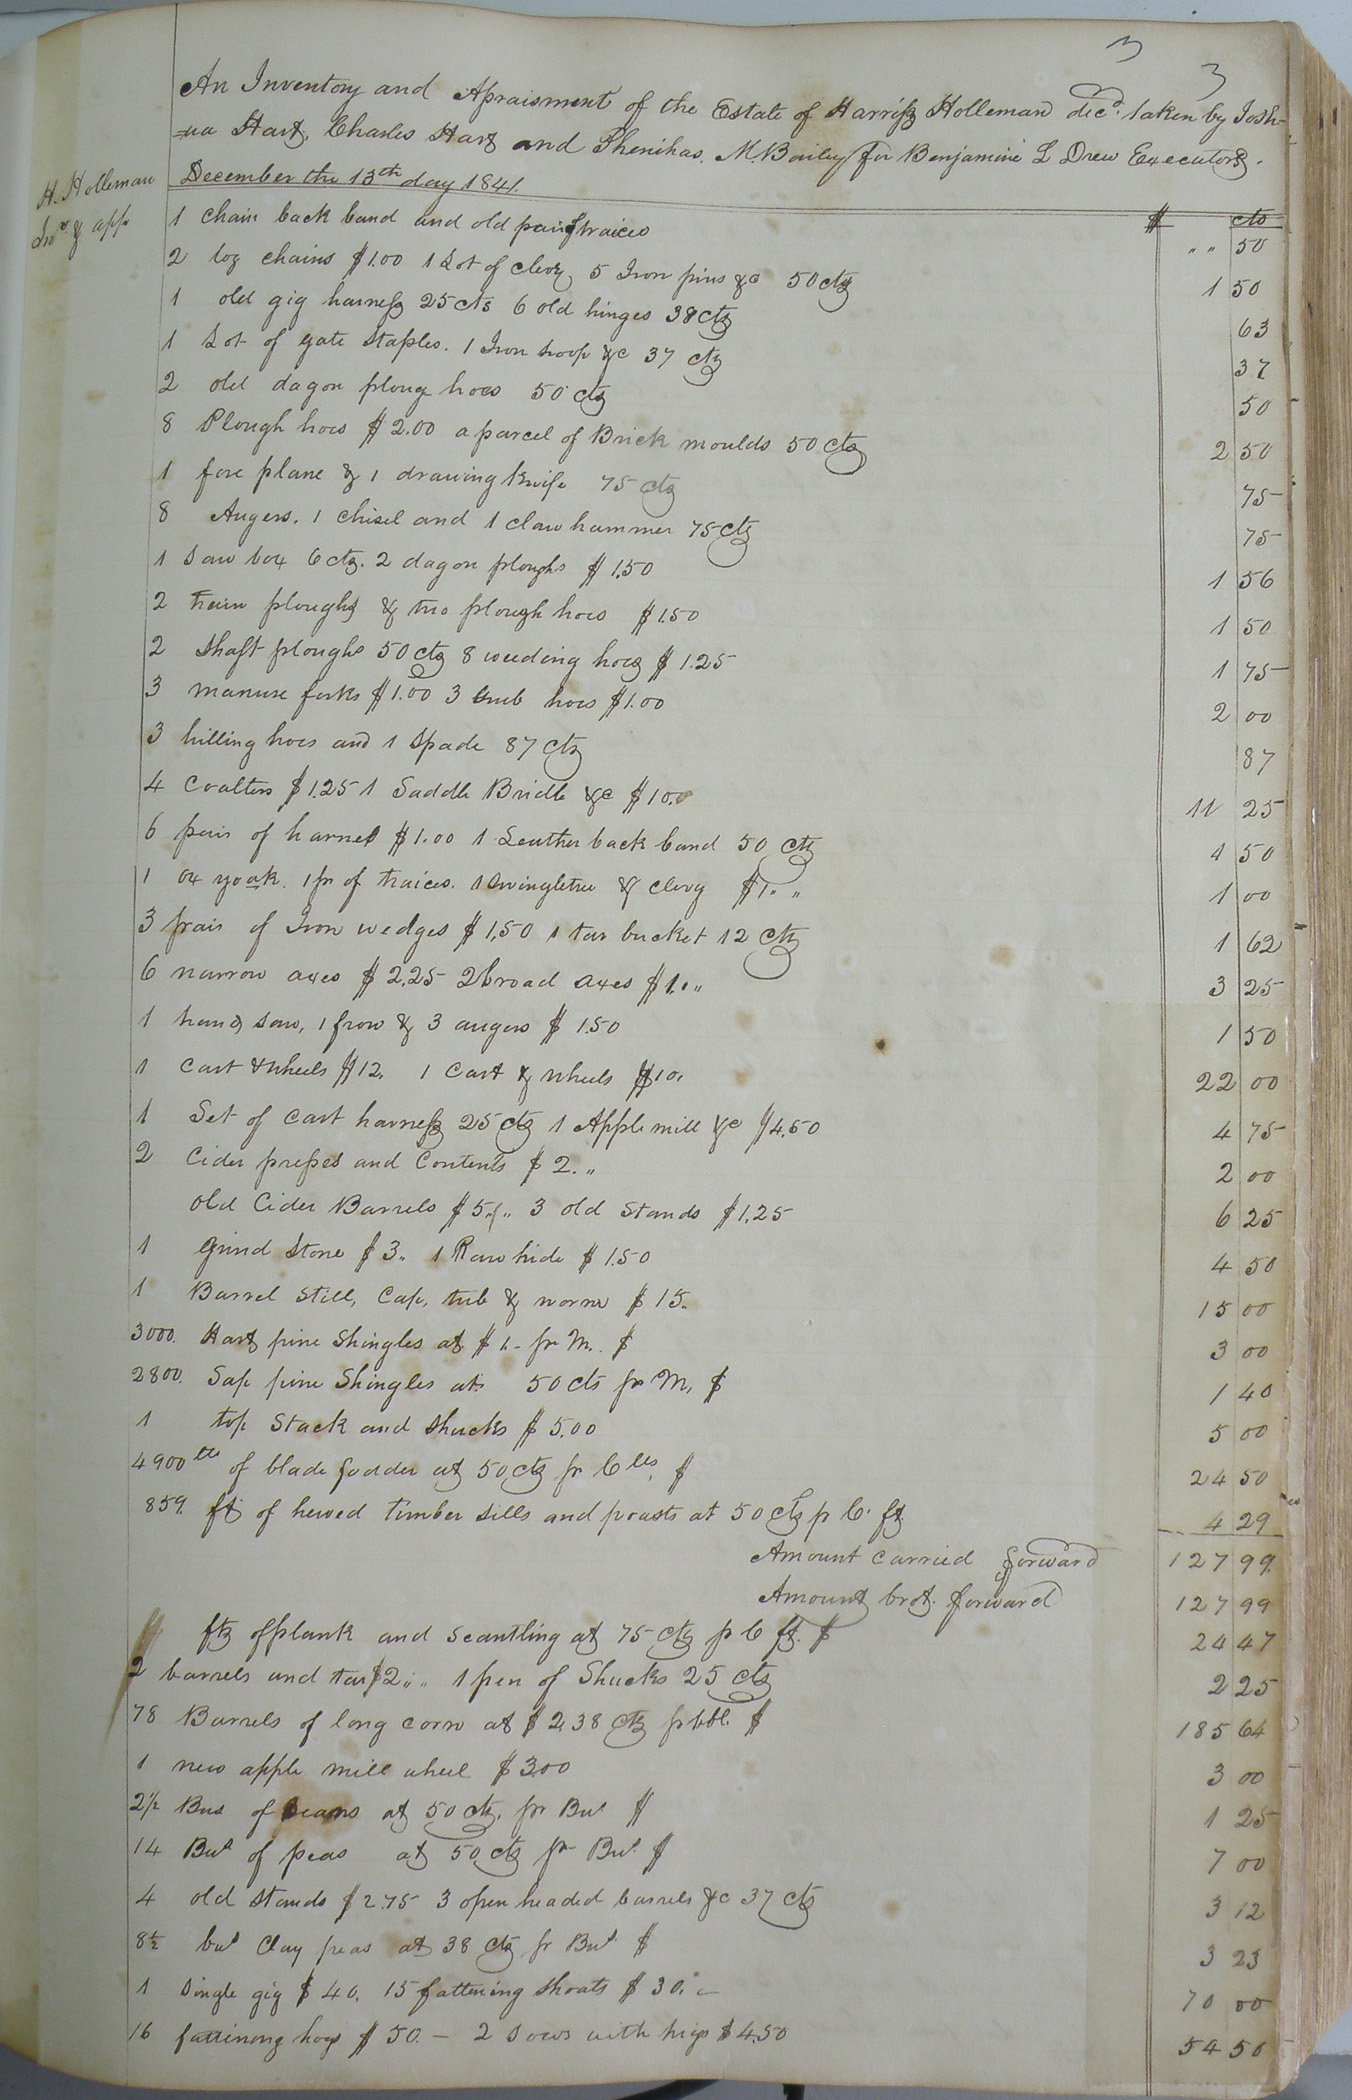 3 3
An Inventory and Apraisment of the Estate of Harriss Holleman decd. taken by Josh-
ua Hart, Charles Hart and Phenihas. M. Bailey for Benjamine L Drew Executor.
December the 13th day 1841.
H. Holleman
Invy. & app
$ cts
1 chain back band and old pair of traices " " 50
2 log chains $1.00 1 Lot of clevy, 5 Iron pins &c 50 cts 1 50
1 old gig harness 25 cts 6 old hinges 38 cts 63
1 Lot of gate staples. 1 Iron hoop &c 37 cts 37
2 old dagon ploug hoes 50 cts 50
8 Plough hoes $2.00 a parcel of Brick moulds 50 cts 2 50
1 fore plane & 1 drawing knife 75 cts 75
8 Augers. 1 chisel and 1 claw hammer 75 cts 75
1 saw box 6 cts. 2 dagon ploughs $1.50 1 56
2 ploughs & two plough hoes $1.50 1 50
2 shaft ploughs 50 cts 8 weeding hoes $1.25 1 75
3 manure forks $1.00 3 hoes $1.00 2 00
3 hilling hoes and 1 spade 87 cts 87
4 Coalters $1.25 1 Saddle Bridle &c $10.0 11 25
6 pair of harnes $1.00 1 Leather back band 50 cts 1 50
1 ox yoak. 1 pr of traices. 1 swingletree & clevy $1. " 1 00
3 pair of Iron wedges $1.50 1 tar bucket 12 cts 1 62
6 narrow axes $2.25 2 broad axes $1. " 3 25
1 hand saw, 1 frow & 3 augers $1.50 1 50
1 Cart & wheels $12. 1 Cart & wheels $10. 22 00
1 Set of cart harness 25 cts 1 Apple mill &c $4.50 4 75
2 Cider presses and Contents $2. " 2 00
Old Cider Barrels $5. " 3 old stands $1.25 6 25
1 Grind Stone $3 " 1 Raw hide $1.50 4 50
1 Barrel Still, Cap, tub & worm $15. 15 00
3000. Hart pine Shingles at $1.- pr M. $ 3 00
2800. Sap pine Shingles at 50 cts pr M, $ 1 40
1 top Stack and shucks $5.00 5 00
4900 lbs of blade fodder at 50 cts pr C lbs, $ 24 50
859. ft of hewed timber sills and poasts at 50 cts p C. ft 4 29
Amount carried forward 127 99.
Amount brot. forward 127 99
ft of plank and scantling at 75 cts p C ft. $ 24 47
2 barrels and tar $2. " 1 pen of Shucks 25 cts 2 25
78 Barrels of long corn at $2.38 cts pr bbl. $ 185 64
1 new apple mill wheel $3.00 3 00
2½ Bus of beans at 50 cts. pr Bus $ 1 25
14 Bus of peas at 50 cts pr Bus. $ 7 00
4 old stands $2.75 3 open headed barrels &c 37 cts 3 12
8½ bus Clay peas at 38 cts pr Bus $ 3 23
1 single gig $40. 15 fattening shoats $30. - 70 00
16 fattinong hogs $50. - 2 sows with pigs $4.50 54 50